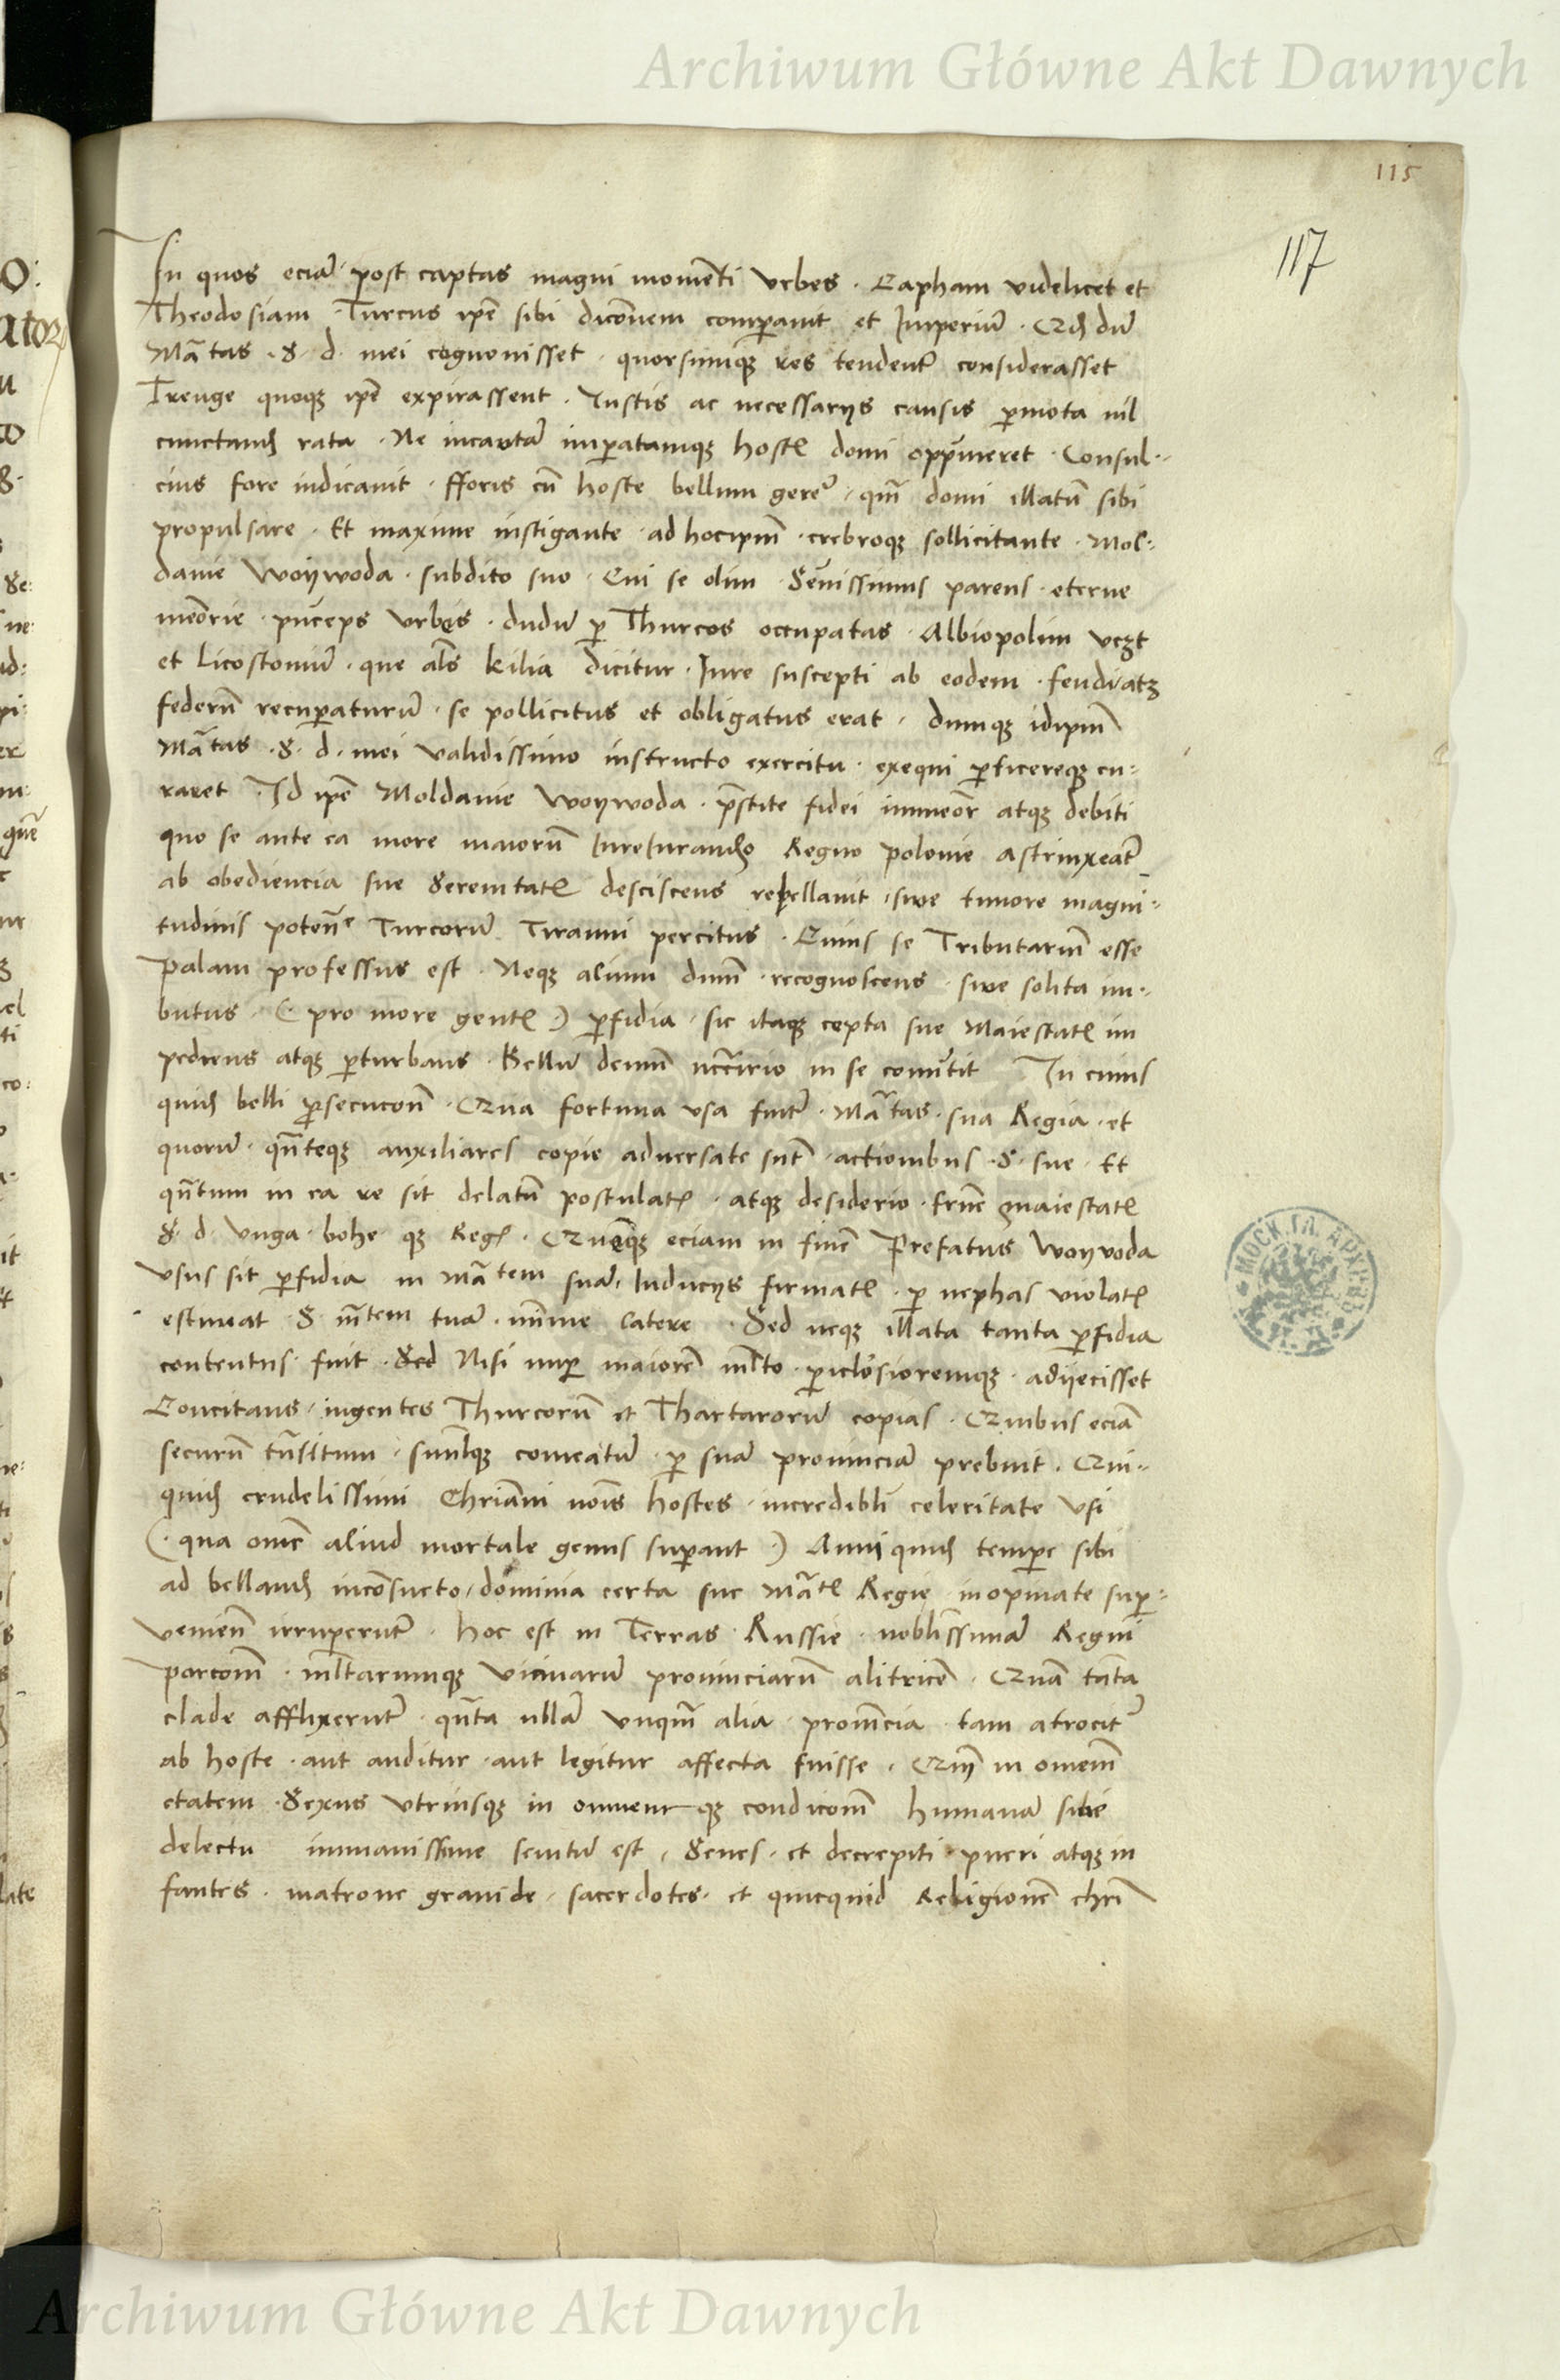 Archiwum Główne Akt Dawnych
115
117
In quos eciā post captas magni momēti vrbes . Capham videlicet et
Theodosiam Turcus ipē sibi dicōnem comparauit et Imperiū . Qd dū
Mātas . S . d . mei cognouisset . quorsumq3 res tendent considerasset
Treuge quoq3 ipē expirassent . Iustis ac necessarijs causis pmota nil
cunctand rata . Ne incautā imparatamq3 hostē domi opprimeret . Consul
cius fore iudicauit . fforis cū hoste bellum gere . qm domi illatū sibi
propulsare . Et maxime instigante . ad hocipm crebroq3 sollicitante . Mol
dauie Woywoda . subdito suo . Cui se olim . Senissimus parens . eterne
meōrie . princeps vrbes . dudū p Thurcos occupatas . Albiopolim vczt
et Licostomiū . que als kilia dicitur . Iure suscepti ab eodem . feudi atq3
federū recuperaturū . se pollicitus et obligatus erat . dumq3 idipm
Mātas . S . d . mei validissimo instructo exercitu . exequi pficereq3 cu
raret Id ipē Moldauie Woywoda . prestite fidei immeor atq3 debiti
quo se ante ea more maiorū Iureiurando Regno polonie astrinxeat
ab obediencia sue Serenitatē desciscens rebellauit , siue timore magni
tudinis poten Turcorū Tiranni percitus . Cuius se Tributariū esse
Palam professus est . Neq3 alium dnm recognoscens . siue solita im
butus . ( pro more gentē ) pfidia . sic itaq3 cepta sue Maiestatē im
pediens atq3 pturbans . Bellū demū nccario in se conūtit In cuius
quid belli psecucone . Qua fortuna vsa fuit . Mātas . sua Regia . et
quorū . qnteq3 auxiliares copie aduersate sunt . actionibus . S . sue . Et
quntum in ea re sit delatū postulatē . atq3 desiderio . frne maiestatē
S . d . vnga . bohe q3 Regē . Queq3 eciam in finē Prefatus Woyuoda
vsus sit pfidia in Mātem suā , Inducijs firmatē . p nephas violatē
estimeat S mtem tuā . minime latere . Sed neq3 illata tanta pfidia
contentus fuit . Sed Nisi nup maiorē mlto . piclosioremq3 . adijecisset
Concitans . ingentes Thurcorū et Thartarorū copias . Quibus eciā
securū tnsitum . summq3 comeatū . p suā prouinciā prebuit . Qui
quid crudelissimi Chriani nois hostes . incredibli celeritate vsi
( qua omē aliud mortale genus supant ) Anni quid tempe sibi
ad belland inconsueto , dominia certa sue Mātē Regie inopinate sup
venien irruperunt . hoc est in Terras Russie . noblissimā Regni
porcom . mltarumq3 vicinarū prouinciarū alitricē . Quā tāta
clade afflixerunt . qnta vllā vnqm alia . prouincia . tam atrocit
ab hoste . aut auditur . aut legitur affecta fuisse . Qm in omem
etatem . Sexus vtriusq3 in omnem q3 condicom humanā sine
delectu immanissime seuitū est , Senes . et decrepiti pueri atq3 in
fantes . matrone grauide . sacerdotes . et quicquid Religionē chri
МОСК. ГЛ. АРХИВЪ
Archiwum Główne Akt Dawnych